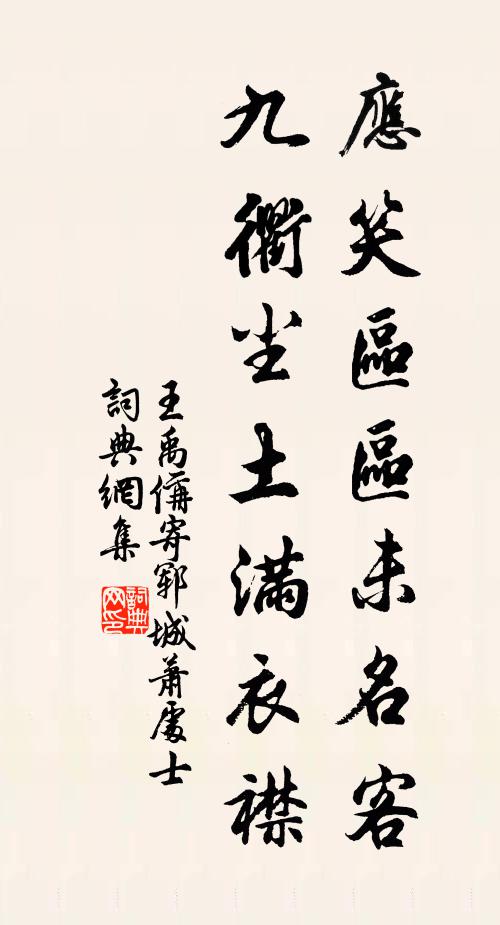 應笑區區未名客
九衢尘土滿衣襟
王禹偁寄鄆城蕭處士
詞典網集
詞典网印